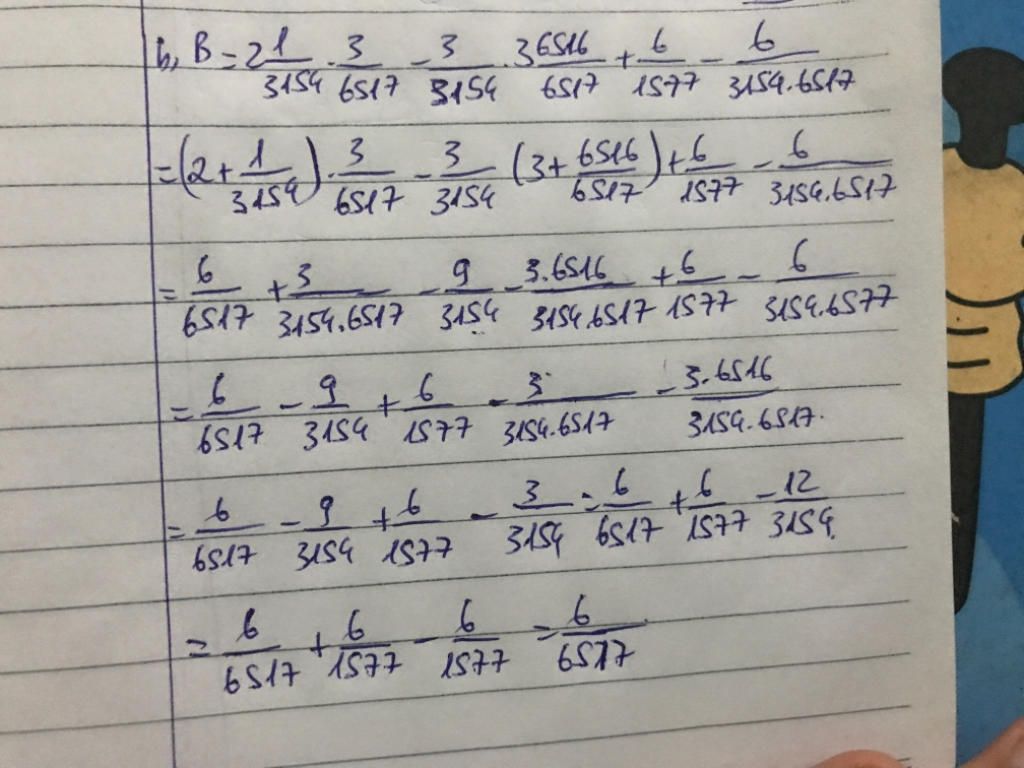 b, B = 2 1/3154 . 3/6517 - 3/3154 . 3 6516/6517 + 6/1577 - 6/3154.6517
= (2 + 1/3154) . 3/6517 - 3/3154 (3 + 6516/6517) + 6/1577 - 6/3154.6517
= 6/6517 + 3/3154.6517 - 9/3154 - 3.6516/3154.6517 + 6/1577 - 6/3154.6577
= 6/6517 - 9/3154 + 6/1577 - 3/3154.6517 - 3.6516/3154.6517.
= 6/6517 - 9/3154 + 6/1577 - 3/3154 = 6/6517 + 6/1577 - 12/3154.
= 6/6517 + 6/1577 - 6/1577 = 6/6517